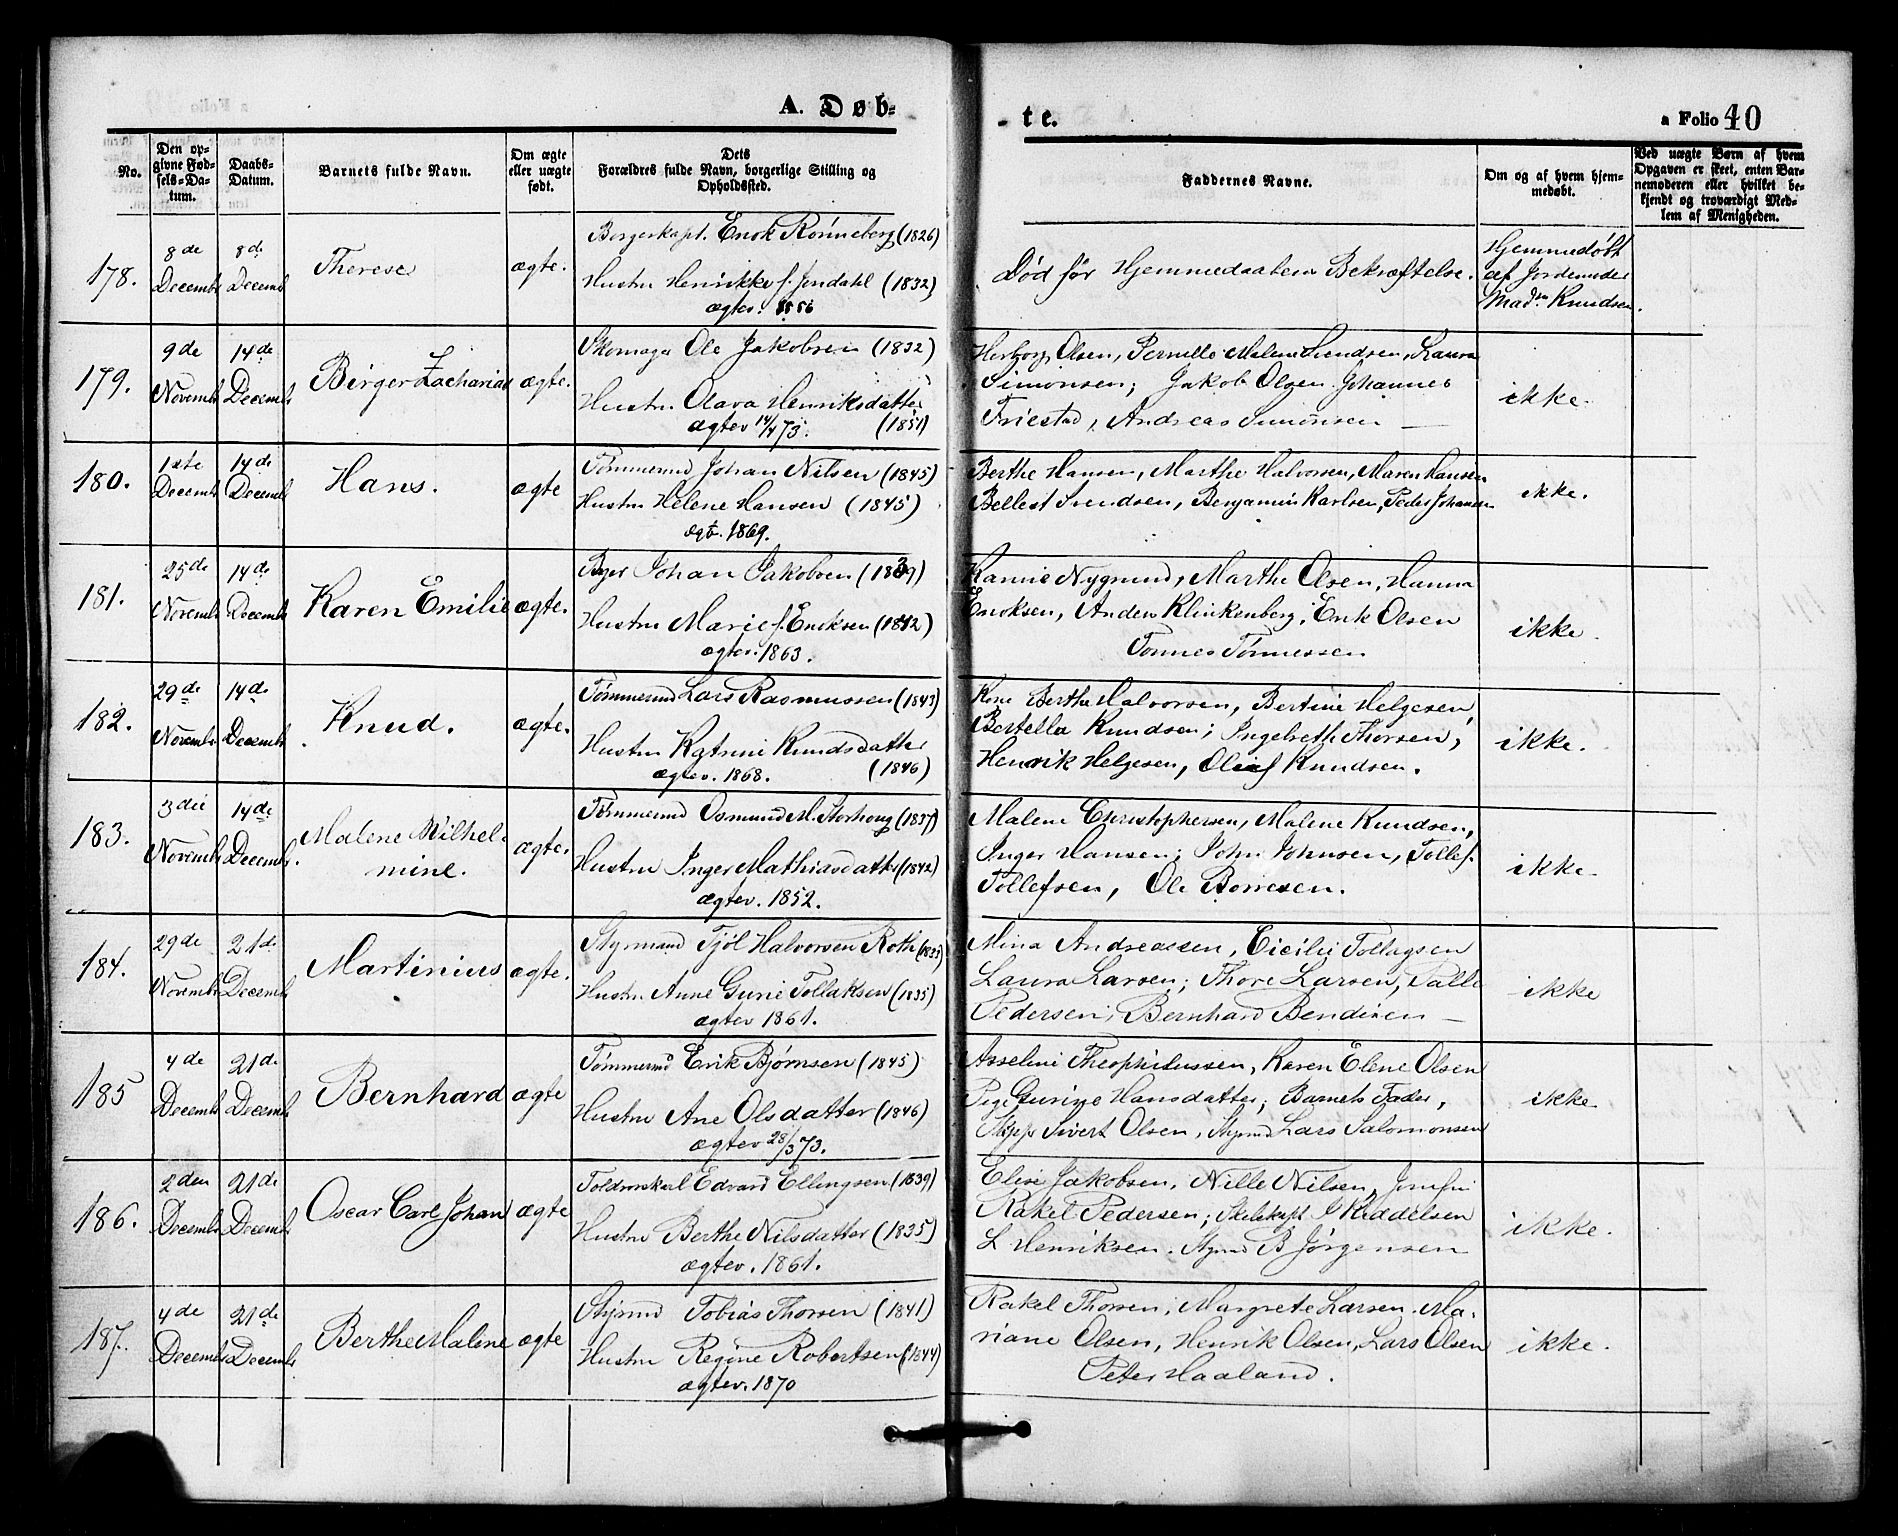 A. Døb-
te.
a Folio 40
No.
Den op-
givne Fød-
sels-Da-
tum.
Daabs-
Datum.
Barnets fulde Navn.
Om ægte
eller uægte
født.
Dets
Forældres fulde Navn, borgerlige Stilling og
Opholdssted.
Faddernes Navne.
Om og af hvem hjem-
medøbt.
Ved uægte Børn af hvem
Opgaven er skeet, enten Bar-
nemoderen eller hvilket be-
kjendt og troværdigt Med-
lem af Menigheden.
178.
8de
Decembr
8de
Decembr
Therese
ægte.
Borgerkapt. Enok Rønneberg (1826)
Hustru Henrikke f. Jendahl (1832)
ægtev. 1856
Død før Hjemmedaabens Bekræftelse.
Hjemmedøbt
af Jordemoder
Madm Knudsen.
179.
9de
Novembr
14de
Decembr
Birger Zacharias
ægte.
Skomager Ole Jakobsen (1832)
Hustru Olava Henriksdatter
ægtev 14/4 73. (1851)
Herborg Olsen, Pernille Malene Svendsen, Laura
Simonsen; Jakob Olsen, Johannes
Friestad, Andreas Simonsen —
ikke.
180.
1ste
Decembr
14de
Decembr
Hans.
ægte
Tømmermd Johan Nilsen (1845)
Hustru Helene Hansen (1845)
ægt. 1869.
Berthe Hansen, Marthe Halvorsen, Maren Hansen
Bellest Svendsen, Benjamin Karlsen, Peder Johansen
ikke.
181.
25de
Novembr
14de
Decembr
Karen Emilie
ægte.
Johan Jakobsen (1839)
Hustru Marie f. Enoksen (1842)
ægtev. 1863.
Nygrund, Marthe Olsen, Hanna
Enoksen, Anders Klinkenberg, Erik Olsen
Tønnes Tønnessen
ikke.
182.
29de
Novembr
14de
Decembr
Knud.
ægte.
Tømmermd Lars Rasmussen (1843)
Hustru Katrine Knudsdatter
ægtev. 1868. (1846)
Kone Berthe Halvorsen, Bertine Helgesen,
Bertella Knudsen; Ingebreth Thorsen,
Henrik Helgesen, Oluf Knudsen.
ikke.
183.
3die
Novembr
14de
Decembr.
Malene Wilhel-
mine.
ægte.
Tømmermd Osmund M. Storhoug (1837)
Hustru Inger Mathiasdatter (1842)
ægtev. 1852.
Malene Christophersen, Malene Knudsen,
Inger Hansen; John Johnsen, Tollef
Tollefsen, Ole Børresen.
ikke.
184.
29de
Novembr
21de
Decembr
Martinius
ægte.
Styrmand Tjøl Halvorsen Roth (1835)
Hustru Anne Gurie Tollaksen (1835)
ægtev 1861.
Mina Andreassen, Cicilie Tollagsen
Laura Larsen; Thore Larsen, Palle
Pedersen, Bernhard Bendixen —
ikke
185
4de
Decembr
21de
Decembr
Bernhard
ægte
Tømmermd Erik Bjørnsen (1845)
Hustru Ane Olsdatter (1846)
ægtev 28/3 73.
Asseline Theophilussen, Karen Elene Olsen
Pige Gurine Hansdatter; Barnets Fader,
Skipp Sivert Olsen, Styrmd Lars Salomonsen
ikke
186.
2den
Decembr
21de
Decembr
Oscar Carl Johan
ægte
Toldroerskarl Edvard Ellingsen (1839)
Hustru Berthe Nilsdatter (1835)
ægtev. 1861.
Elise Jakobsen, Nille Nilsen, Jomfru
Rakel Pedersen; J Kiddelsen
L Henriksen. Styrmd B Jørgensen
ikke.
187.
4de
Decembr
21de
Decembr
Berthe Malene
ægte
Styrmd Tobias Thorsen (1841)
Hustru Regine Robertsen (1844)
ægtev. 1870
Rakel Thorsen, Margrete Larsen, Ma-
riane Olsen, Henrik Olsen, Lars Olsen
Peter Haaland.
ikke.